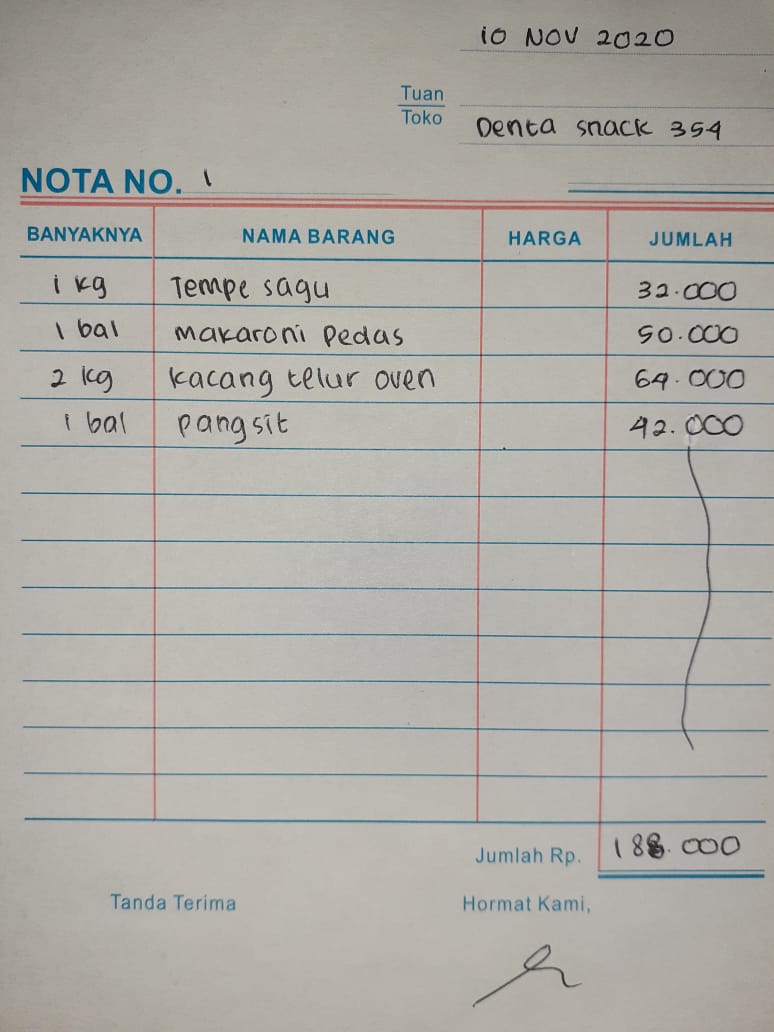 10 NOV 2020
Tuan
Toko
Denta snack 354
NOTA NO. 1
BANYAKNYA NAMA BARANG HARGA JUMLAH
1 kg Tempe sagu 32.000
1 bal makaroni Pedas 50.000
2 kg kacang telur oven 64.000
1 bal pangsit 42.000
Jumlah Rp. 188.000
Tanda Terima Hormat Kami,